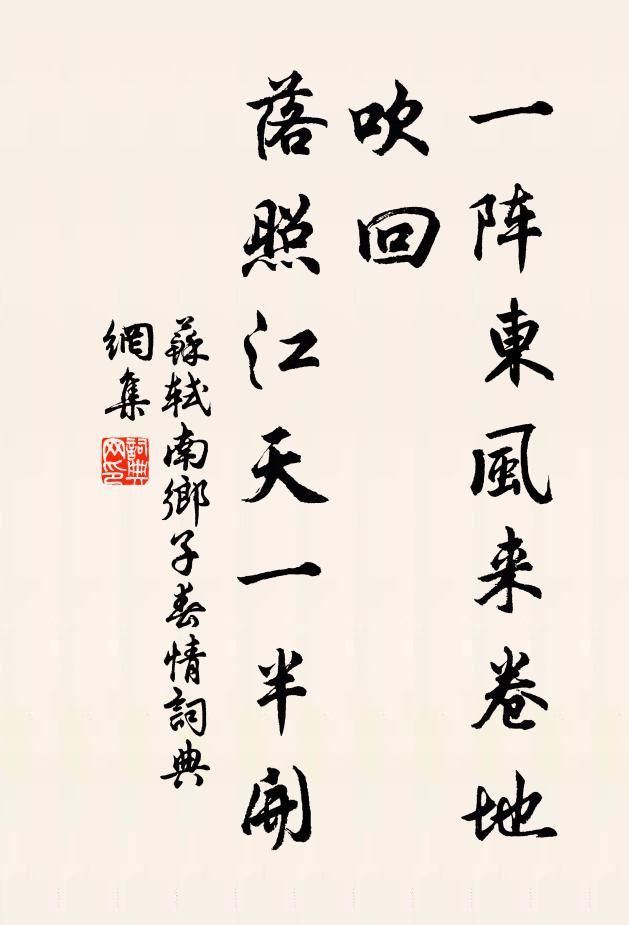 一阵東風来卷地
吹回
落照江天一半開
蘇軾南鄉子春情詞典
網集
詞典
网印